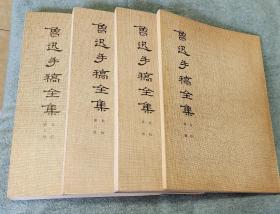 鲁迅手稿全集
鲁迅手稿全集
鲁迅手稿全集
鲁迅手稿全集